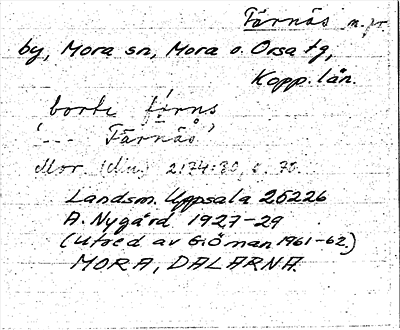 Färnäs n.pr
by, Mora sn, Mora o. Orsa tg,
Kopp. län.
borte færns
'--- Färnäs'
Mor. (Nu.) 2174:80, s. 70.
Landsm. Uppsala 26226
A. Nygård 1927-29
(Utred av GÖman 1961-62.)
MORA, DALARNA.